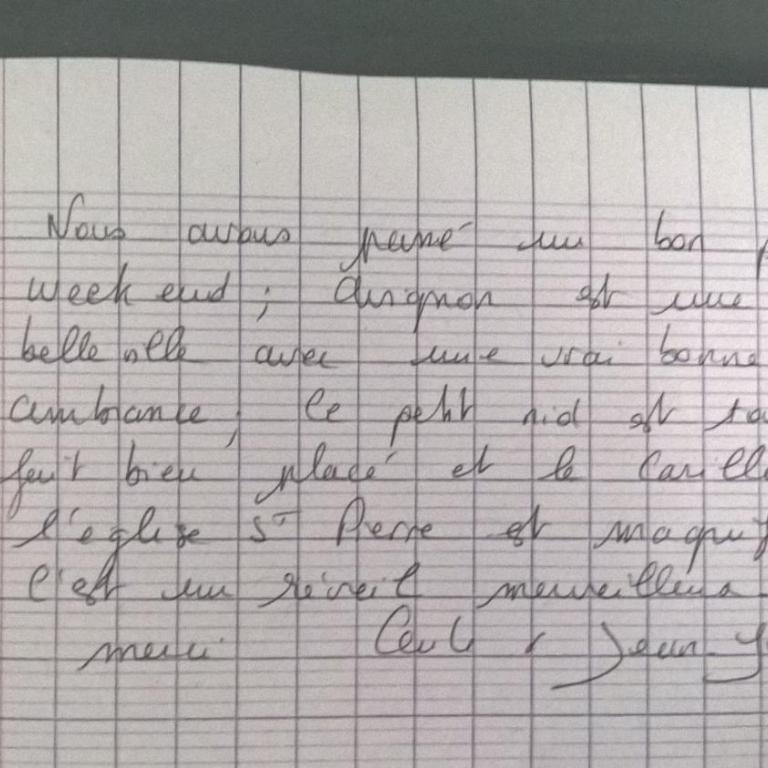 Nous avons passé un bon
week end ; Avignon est une
belle ville avec une vrai bonne
ambiance, le petit nid est
fait bien placé et le
l'église St Pierre est
c'est un réveil merveilleux
merci. Jean